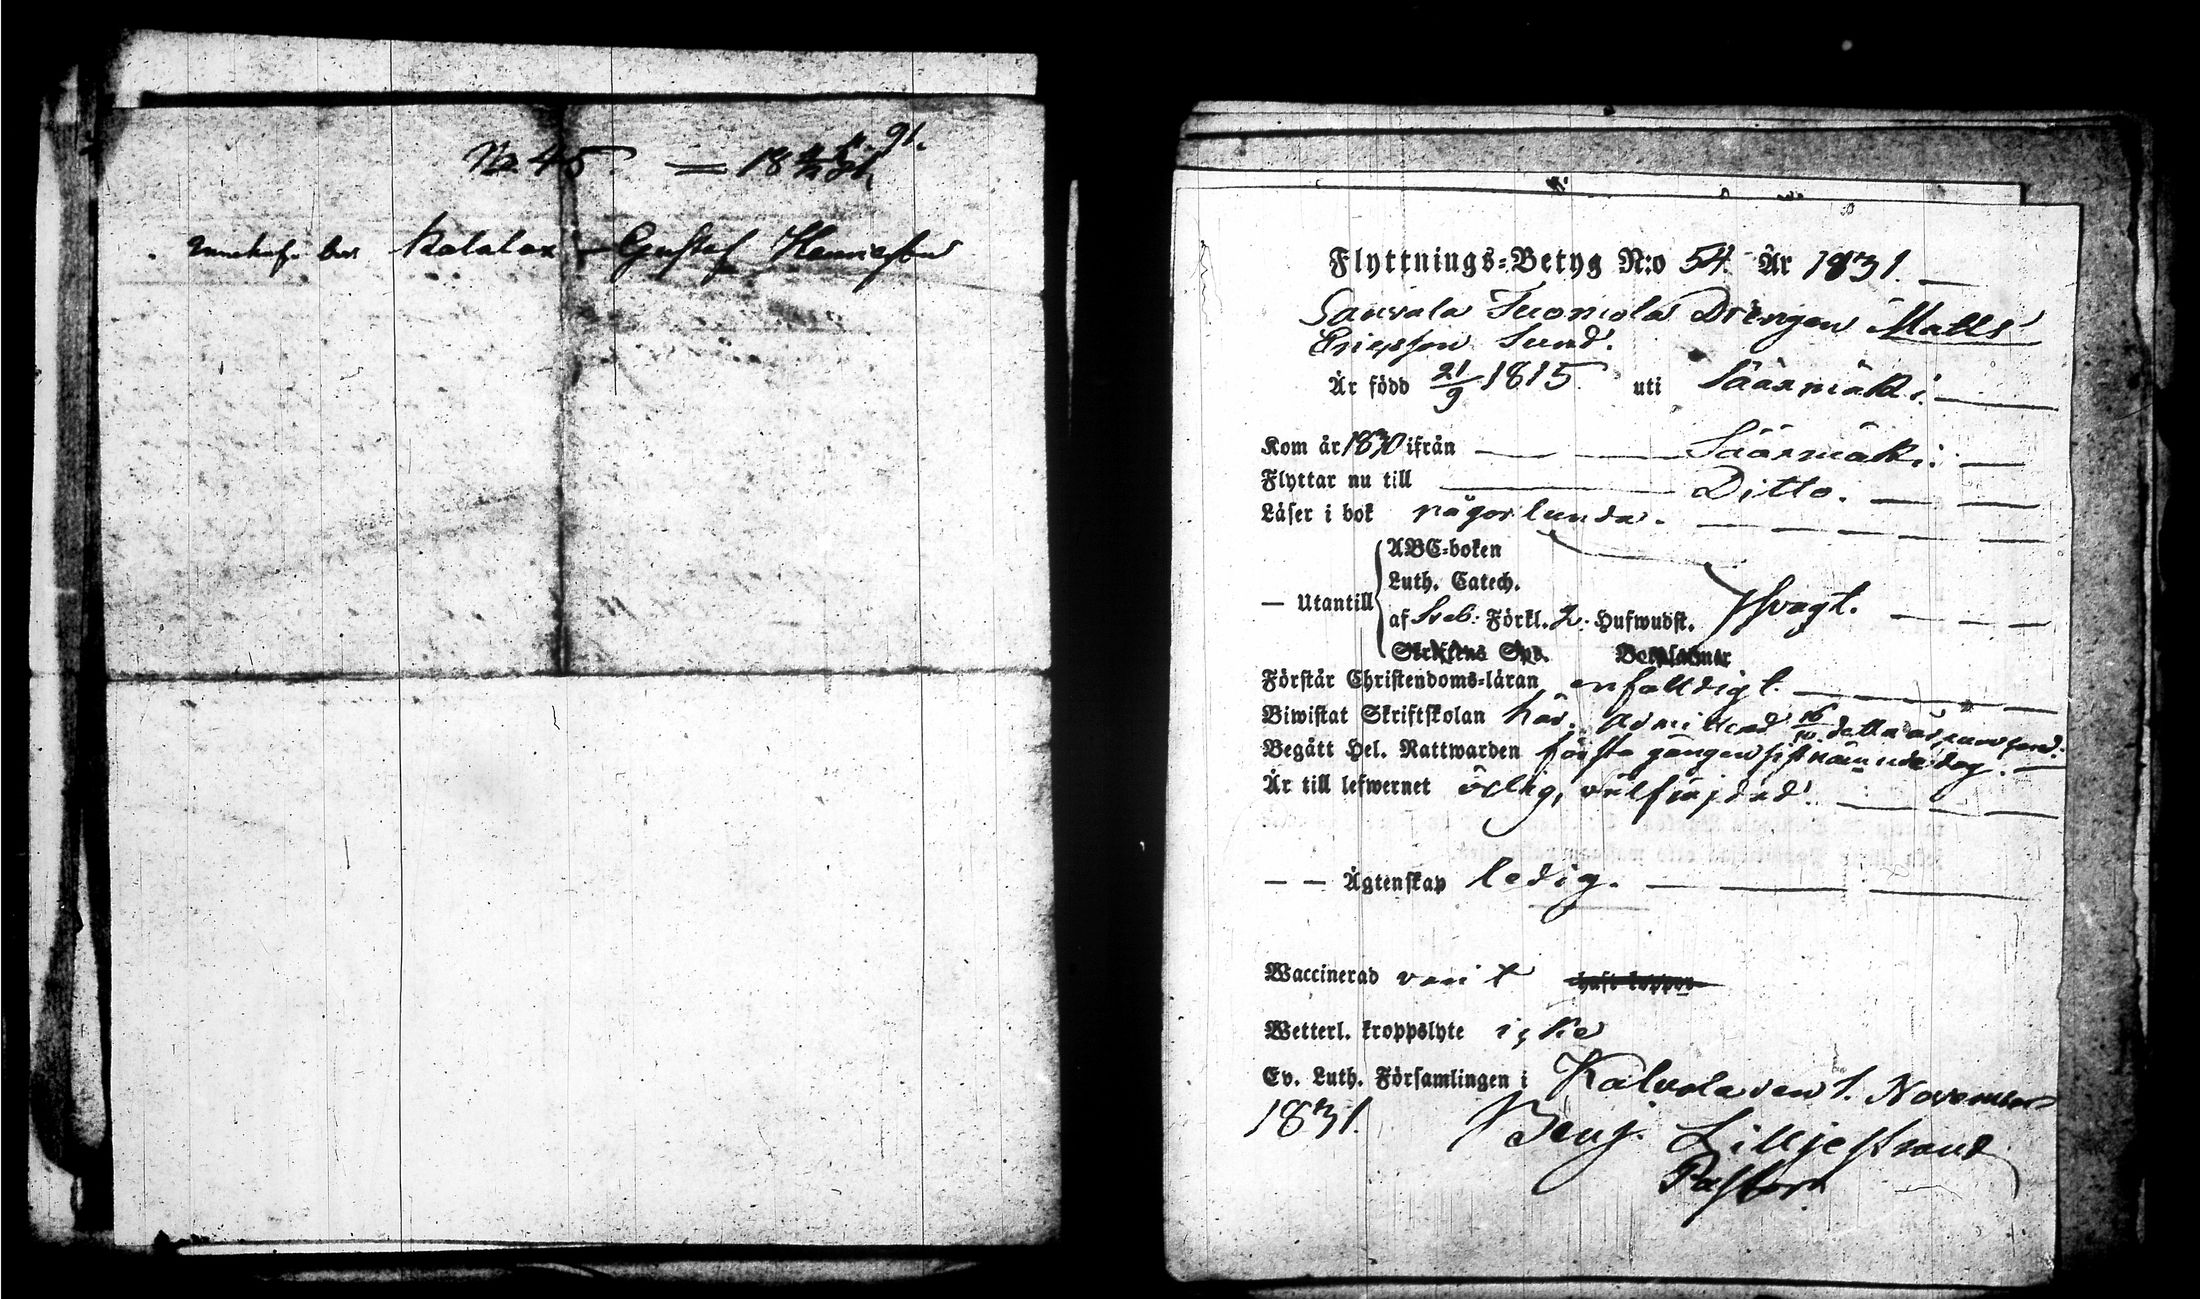 No 45. = 18
Gustaf Henricsson
Flyttnings-Betyg N:o 54. År 1831.
Sauvala Suomola Drängen Matts
Ericsson Sund.
Är född 21/9 1815 uti Sääxmäki.
Kom år 1830 ifrån Sääxmäki.
Flyttar nu till Ditto.
Läser i bok någorlunda.
— Utantill
ABC-boken
Luth. Catech.
af Sveb. Förkl. 2. Hufwudst. svagt.
Skriftens Spr.
Förstår Christendoms-läran enfalldigt.
Biwistat Skriftskolan här. admitterad 16/10 detta år
Begått Hel. Nattwarden första gången sistnämnde dag.
Är till lefwernet ärlig, välfräjdad.
— — Ägtenskap ledig.
Waccinerad varit haft koppor
Wetterl. kroppslyte icke
Ev. Luth. Församlingen i Kalvola den 1. November
1831. Benj. Lilljestrand
Pastor.